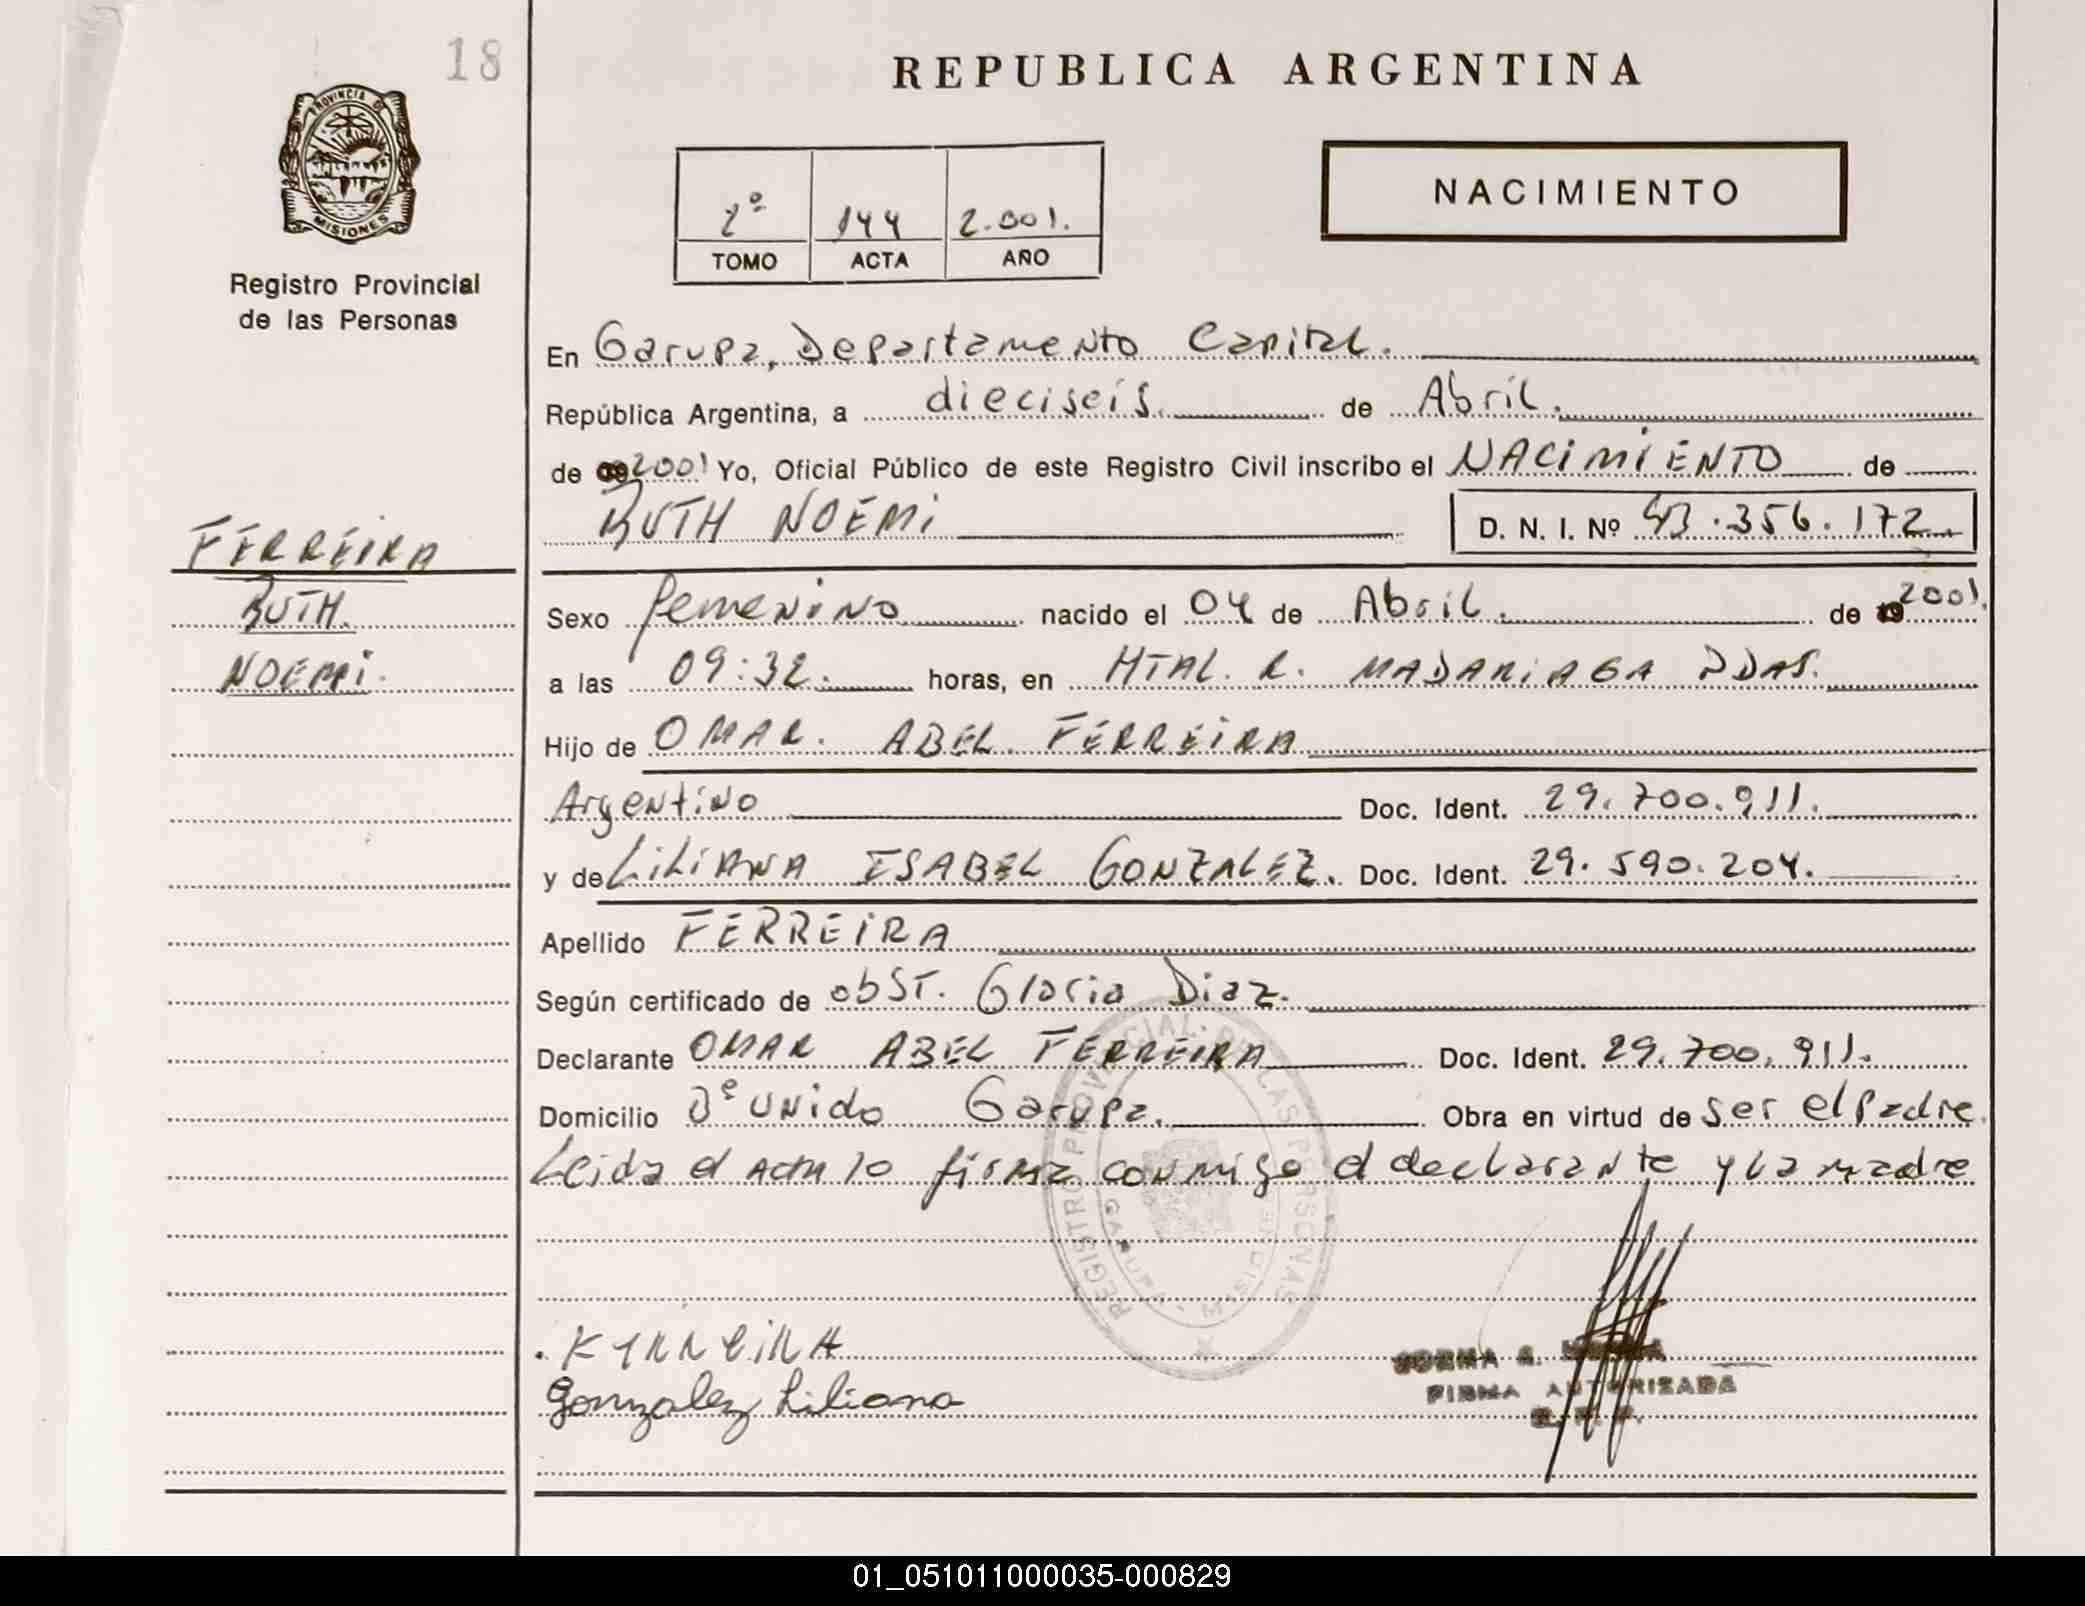 18
PROVINCIA DE
MISIONES
Registro Provincial
de las Personas
FERREIRA
RUTH.
NOEMI.
REPUBLICA ARGENTINA
2º 144 2.001.
TOMO ACTA AÑO
NACIMIENTO
En Garupa, Departamento Capital.
República Argentina, a dieciseis. de Abril.
de 2001 Yo, Oficial Público de este Registro Civil inscribo el NACIMIENTO de
RUTH NOEMI D. N. I. Nº 43.356.172
Sexo femenino nacido el 04 de Abril. de 19 2001.
a las 09:32. horas, en HTAL. R. MADARIAGA PDAS.
Hijo de OMAR. ABEL. FERREIRA
Argentino Doc. Ident. 29.700.911.
y de LILIANA ISABEL GONZALEZ. Doc. Ident. 29.590.204.
Apellido FERREIRA
Según certificado de obst. Gloria Diaz.
Declarante OMAR ABEL FERREIRA Doc. Ident. 29.700.911.
Domicilio Bº unido Garupa. Obra en virtud de ser el padre.
Leida el acta lo firma conmigo el declarante y la madre
REGISTRO PROVINCIAL DE LAS PERSONAS
GARUPA - MISIONES
FERREIRA
Gonzalez Liliana
NORMA A.
FIRMA AUTORIZADA
01_051011000035-000829